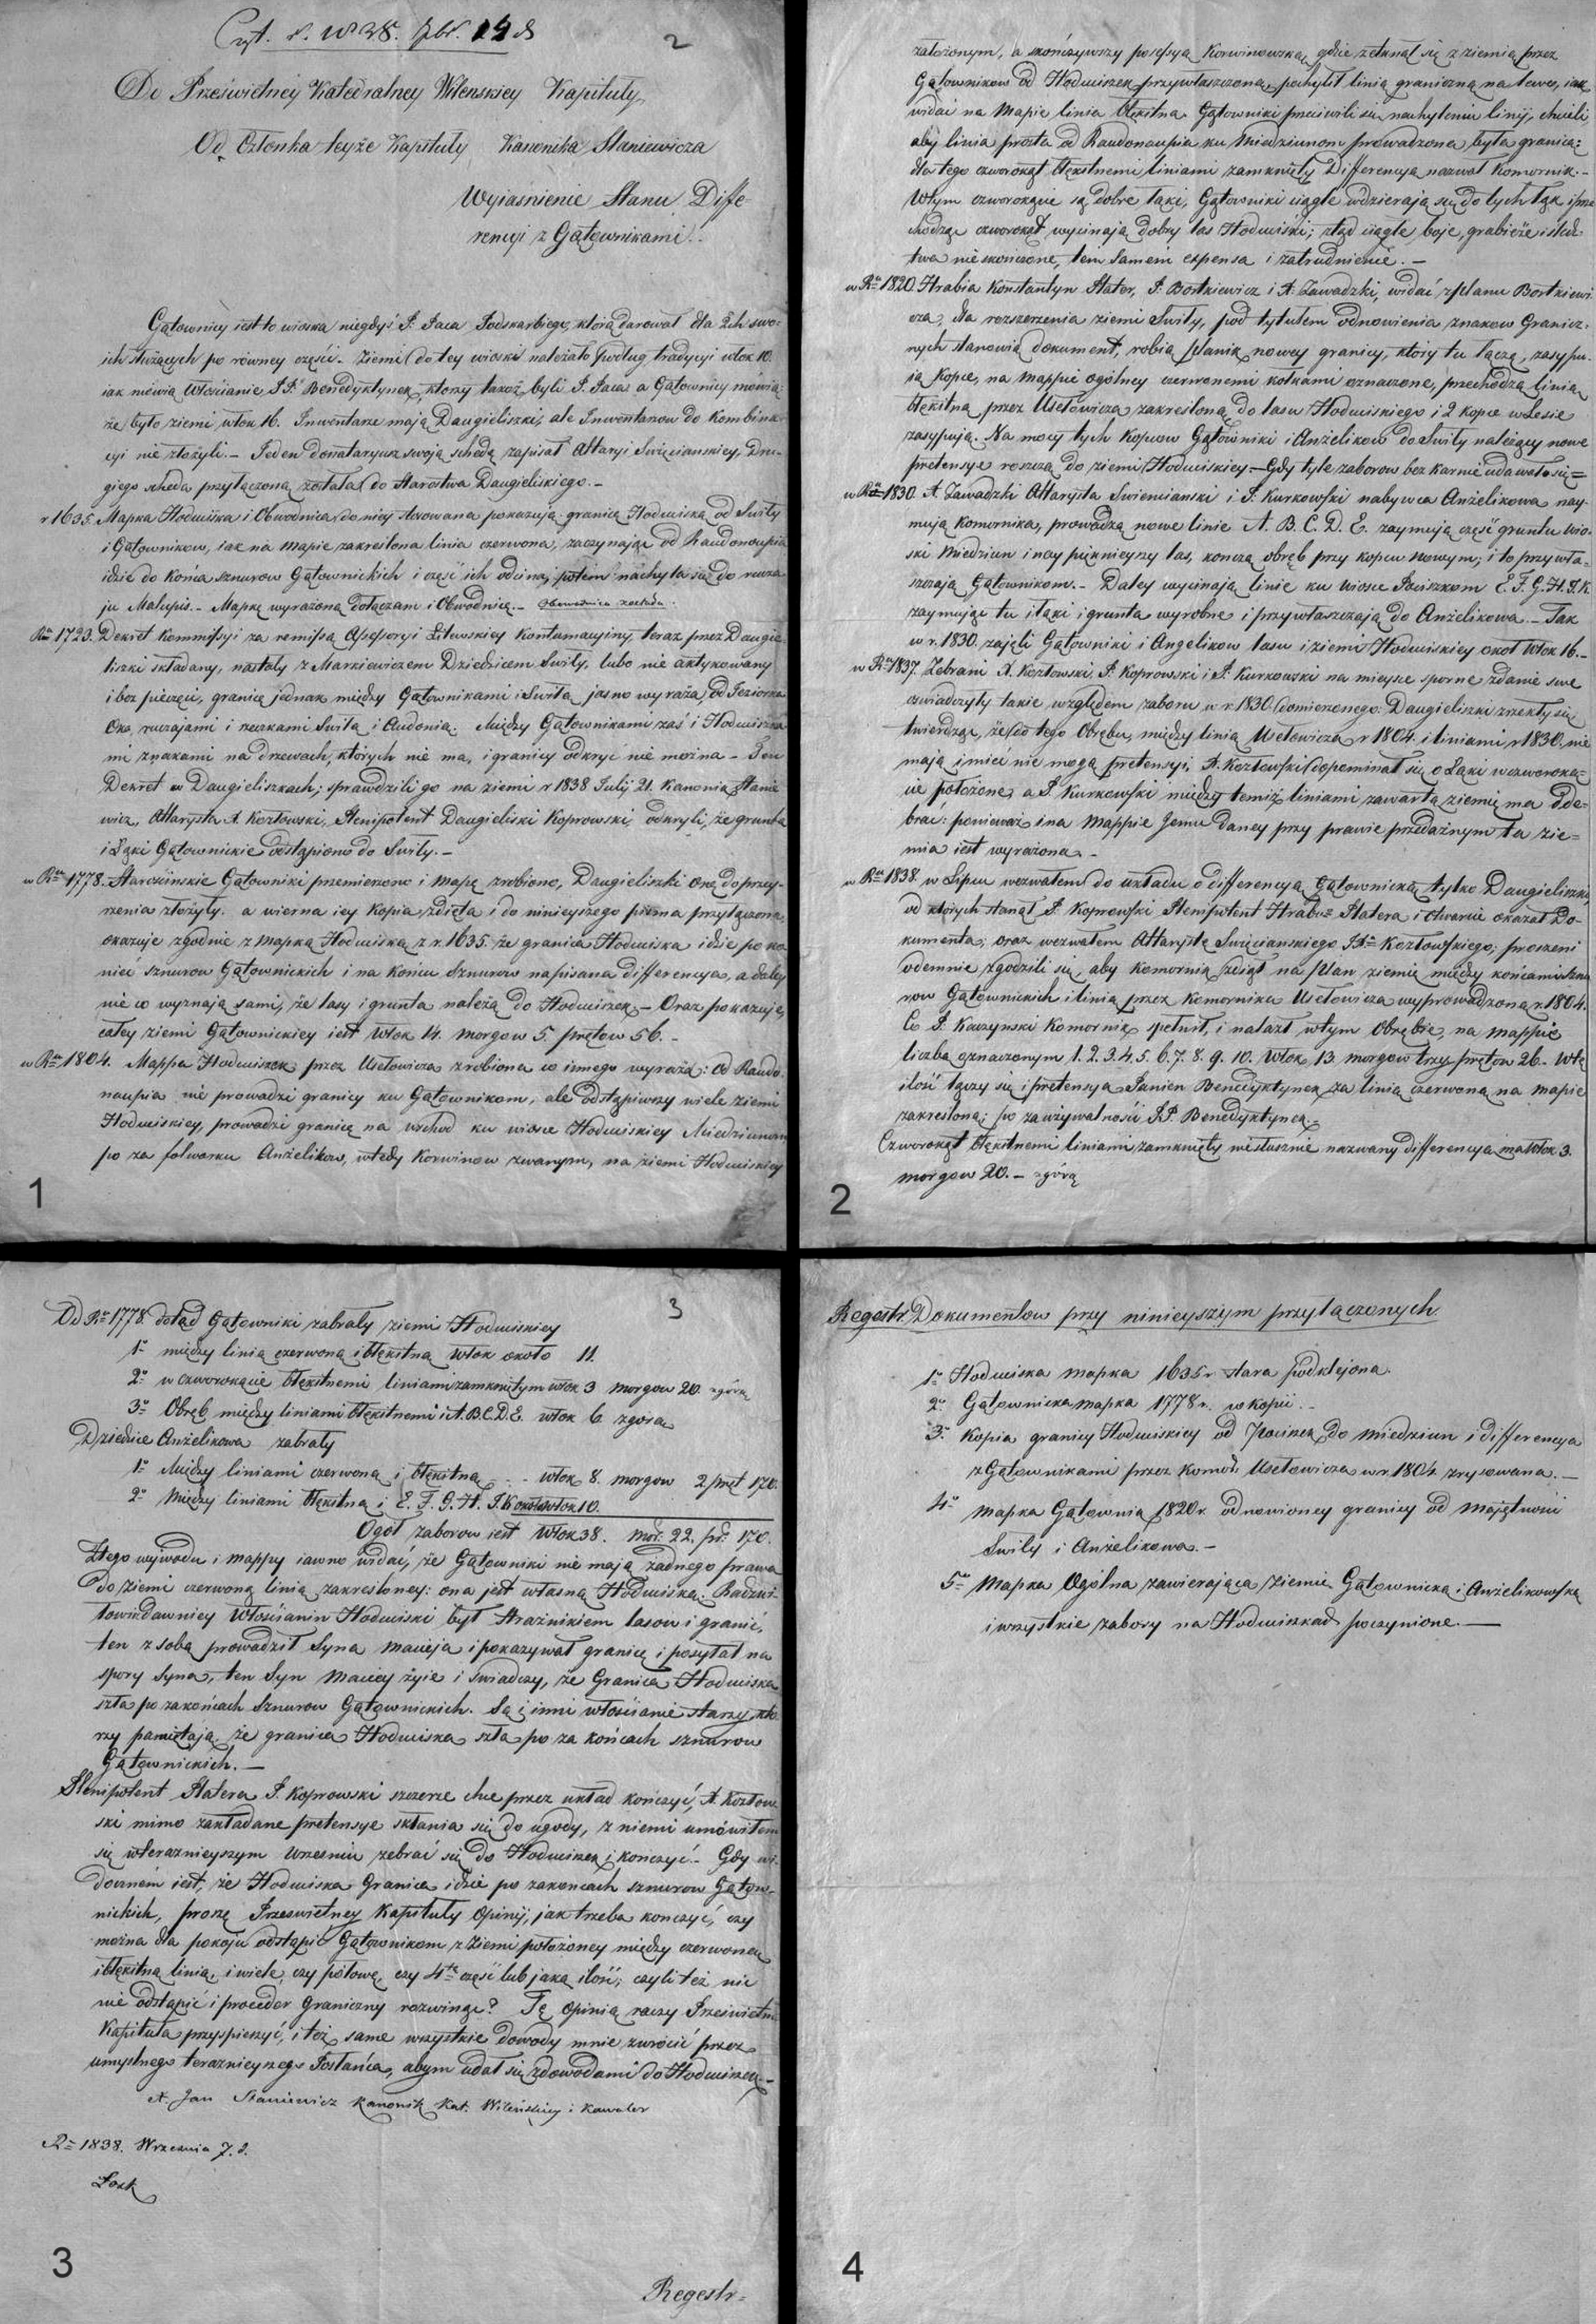 Czyt. r. 1838. 7br. 14 d
2
Do Prześwietney Katedralney Wilenskiey Kapituły
Od Członka teyże Kapituły Kanonika Staniewicza
Wyiasnienie Stanu Diffe-
rencyi z Gątownikami.
Gątownicy iest to wioska niegdyś P. Paca Podskarbiego, którą darował dla 2ch swo-
ich służących po równey części. Ziemi do tey wioski należało podług tradycyi włok 10.
iak mówią Włościanie PP. Benedyktynek, ktorzy takoż byli P. Paca a Gątownicy mówią
że było ziemi włok 16. Inwentarze mają Daugieliszki, ale Inwentarzow do Kombina-
cyi nie złożyli. – Jeden donataryusz swoją schedę zapisał Altaryi Swięcianskiey, Dru-
giego scheda przyłączona została do Starostwa Daugieliskiego. –
r 1635. Mapka Hoduciska i Obwodnica do niey stosowana pokazują granicę Hoduciską od Swiły
i Gątownikow, iak na mapie zakreślona linia czerwona, zaczynając od Raudonoupia
idzie do końca sznurow Gątownickich i część ich odcina, potem nachyla się do rucza-
ju Malupis. – Mapkę wyrażoną dołączam i Obwodnicę. –
Ru 1723. Dekret Kommissyi za remissą Assessoryi Litewskiey Kontumacyiny, teraz przez Daugie-
liszki składany, nastały z Markiewiczem Dziedzicem Swiły, lubo nie aktykowany
i bez pieczęci, granicę jednak między Gątownikami i Swiłą jasno wyraża, od Jeziorka
Oka, ruczajami i rzeczkami Swiłą i Audonią. Między Gątownikami zaś i Hoduciszka-
mi znakami na drzewach, ktorych nie ma, i granicy odkryć nie można – Ten
Dekret w Daugieliszkach; sprawdzili go na ziemi r 1838 Julij 21. Kanonik Stanie-
wicz, Altarysta X. Kozłowski, Plenipotent Daugieliski Koprowski, odkryli, że grunta
i Łąki Gątownickie odstąpiono do Swiły. –
w Ru 1778. Starościnskie Gątowniki przemierzono i mapę zrobiono, Daugieliszki oną do przey-
rzenia złożyły. a wierna iey Kopia zdięta i do ninieyszego pisma przyłączona,
okazuje zgodnie z mapką Hoduciską z r. 1635. że granica Hoduciska idzie po ko-
niec sznurow Gątownickich i na końcu Sznurow napisana differencya, a daley
nieco wyznają sami, że lasy i grunta należą do Hoduciszek. – Oraz pokazuje,
całey ziemi Gątownickiey iest włok 14. morgow 5. prętow 56. –
w Ru 1804. Mappa Hoduciszek przez Usełowicza zrobiona co innego wyraża: od Raudo-
noupia nie prowadzi granicy ku Gątownikom, ale odstąpiwszy wiele ziemi
Hoduciskiey, prowadzi granicę na wschod ku wiosce Hoduciskiey Miedziunom
po za folwarku Anżelikow, wtedy Korwinow zwanym, na ziemi Hoduciskiey
1
założonym, a skończywszy possesyą Korwinowską, gdzie zetknął się z ziemią przez
Gątownikow od Hoduciszek przywłaszczoną, pochylił linią graniczną na lewo, iak
widać na Mapie linia błękitna. Gątowniki przeciwili się nachyleniu linij, chcieli
aby linia prosta od Raudonoupia ku Miedziunom prowadzona była granicą:
dla tego czworokąt błękitnemi liniami zamknięty Differencyą nazwał Komornik. –
Wtym czworokącie są dobre łąki, Gątowniki ciągle wdzierają się do tych łąk i prze-
chodząc czworokąt wycinają dobry las Hoduciski; ztąd ciągłe boje, grabieże i śledz-
twa nieskończone, tem samem expensa i zatrudnienie. –
w Ru 1820. Hrabia Konstantyn Plater, P. Bortkiewicz i X. Zawadzki, widać z planu Bortkiewi-
cza, dla rozszerzenia ziemi Swiły, pod tytułem odnowienia znakow Granicz-
nych stanowią dokument, robią planik nowey granicy, ktory tu łączą, zasypu-
ią Kopce, na mappie ogolney czerwonemi kołkami oznaczone, przechodzą linią
błękitną przez Usełowicza zakresloną do lasu Hoduciskiego i 2 kopce w Lesie
zasypują. Na mocy tych Kopcow Gątowniki i Anżelikow do Swiły należący nowe
pretensye roszczą do ziemi Hoduciskiey – Gdy tyle zaborow bezkarnie udawało się =
w Ru 1830. X. Zawadzki Altarysta Swiencianski i P. Kurkowski nabywca Anżelikowa nay-
mują Komornika, prowadzą nowe linie A. B. C. D. E. zaymują część gruntu wio-
ski Miedziun i naypięknieyszy las, konczą obręb przy kopcu nowym; i to przywła-
szczają Gątownikom. – Daley wycinają linie ku wiosce Pociszkom E. F. G. H. I. K.
zaymując tu i łąki i grunta wyrobne i przywłaszczają do Anżelikowa. – Tak
w r. 1830. zajęli Gątowniki i Angelikow lasu i ziemi Hoduciskiey okoł włok 16. –
w Ru 1837. Zebrani X. Kozłowski, P. Koprowski i P. Kurkowski na mieysce sporne zdanie swe
oświadczyły takie względem zaboru w r. 1830. domierzonego: Daugieliszki zrzekły się
twierdząc, że do tego Obrębu, między linią Usełowicza r 1804. i liniami r 1830. nie
mają i mieć nie mogą pretensyi, X. Kozłowski dopominał się o Łąki w czworoką-
cie położone, a P. Kurkowski między temiż liniami zawartą ziemię ma ode-
brać: ponieważ i na mappie Jemu daney przy prawie przedażnym ta zie-
mia iest wyrażona. –
w Ru 1838. w Lipcu wezwałem do układu o differencyą Gątownicką tylko Daugieliszki,
od ktorych stanął P. Koprowski Plenipotent Hrabi Platera i otwarcie okazał Do-
kumenta, oraz wezwałem Altarystę Swięcianskiego Xa Kozłowskiego; proszeni
odemnie zgodzili się, aby Komornik zdiął na plan ziemię między końcami sznu-
row Gątownickich i linią przez Komornika Usełowicza wyprowadzoną r. 1804.
Co P. Kuczynski Komornik spełnił, i nalazł w tym Obrębie, na mappie
liczbą oznaczonym 1. 2. 3. 4. 5. 6. 7. 8. 9. 10. włok 13 morgow trzy prętow 26. – W tę
ilość łączy się i pretensya Panien Benedyktynek za linią czerwoną na mapie
zakreśloną; po zawżywalność PP. Benedyktynek.
Czworokąt błękitnemi liniami zamknięty niesłusznie nazwany differencyą ma włok 3.
morgow 20. – z górą
2
3
Od Ru 1778. dotąd Gątowniki zabrały ziemi Hoduciskiey
1o między linią czerwoną i błękitną włok około 11.
2o w czworokącie błękitnemi liniami zamkniętym włok 3 morgow 20. z górą
3o Obręb między liniami błękitnemi i A.B.C.D.E. włok 6 z gora
Dziedzice Anżelikowa zabrały
1o Między liniami czerwoną i błękitną - - - włok 8. morgow 2 pręt 170.
2o Między liniami błękitną i E. F. G. H. I. K około włok 10.
Ogół zaborow iest włok 38. mor. 22. pr. 170.
Z tego wywodu i mappy iawno widać, że Gątowniki nie mają żadnego prawa
do ziemi czerwoną linią zakresloney: ona jest własną Hoduciską. Radziu-
łowin dawniey włościanin Hoduciski był Strażnikiem lasow i granic,
ten z sobą prowadził Syna Macieja i pokazywał granicę i posyłał na
spory Syna, ten Syn Maciey żyie i świadczy, że Granica Hoduciska
szła po za końcach Sznurow Gątownickich. Są i inni włościanie starzy, któ-
rzy pamiętają, że granica Hoduciska szła po za końcach sznurow
Gątownickich. –
Plenipotent Platera P. Koprowski szczerze chce przez układ kończyć, X. Kozłow-
ski mimo zakładane pretensye skłania się do ugody, z niemi umówiłem
się w teraznieyszym wrzesniu zebrać się do Hoduciszek i kończyć. – Gdy wi-
docznem iest, że Hoduciska Granica idzie po za koncach sznurow Gątow-
nickich, proszę Przeswietney Kapituły Opinij, jak trzeba konczyć, czy
można dla pokoju odstąpić Gątownikom z Ziemi położoney między czerwoną
i błękitną linią, i wiele, czy połowę, czy 4tą część lub jaką ilość; czyli też nic
nie odstąpić i proceder Graniczny rozwinąć? Tę Opinią raczy Prześwietna
Kapituła przyspieszyć, i też same wszystkie dowody mnie zwrócić przez
umyślnego teraznieyszego Posłańca, abym udał się z dowodami do Hoduciszek. –
X. Jan Staniewicz Kanonik Kat. Wileńskiey i Kawaler
Ru 1838. Września 7. d.
Łosk
Regestr.
3
Regestr Dokumentow przy ninieyszym przyłączonych.
1o Hoduciska mapka 1635 r. stara podklejona.
2o Gątownicka mapka 1778 r. w kopii. –
3o Kopia granicy Hoduciskiey od Pociszek do Miedziun i differencya
z Gątownikami przez Komor. Usełowicza w r. 1804. zrysowana. –
4o Mapka Gątownia 1820 r. odnowioney granicy od majętności
Swiły i Anżelikowa. –
5o Mapka Ogólna zawierająca Ziemię Gątownicką i Anżelikowską
i wszystkie zabory na Hoduciszkach poczynione. –
4